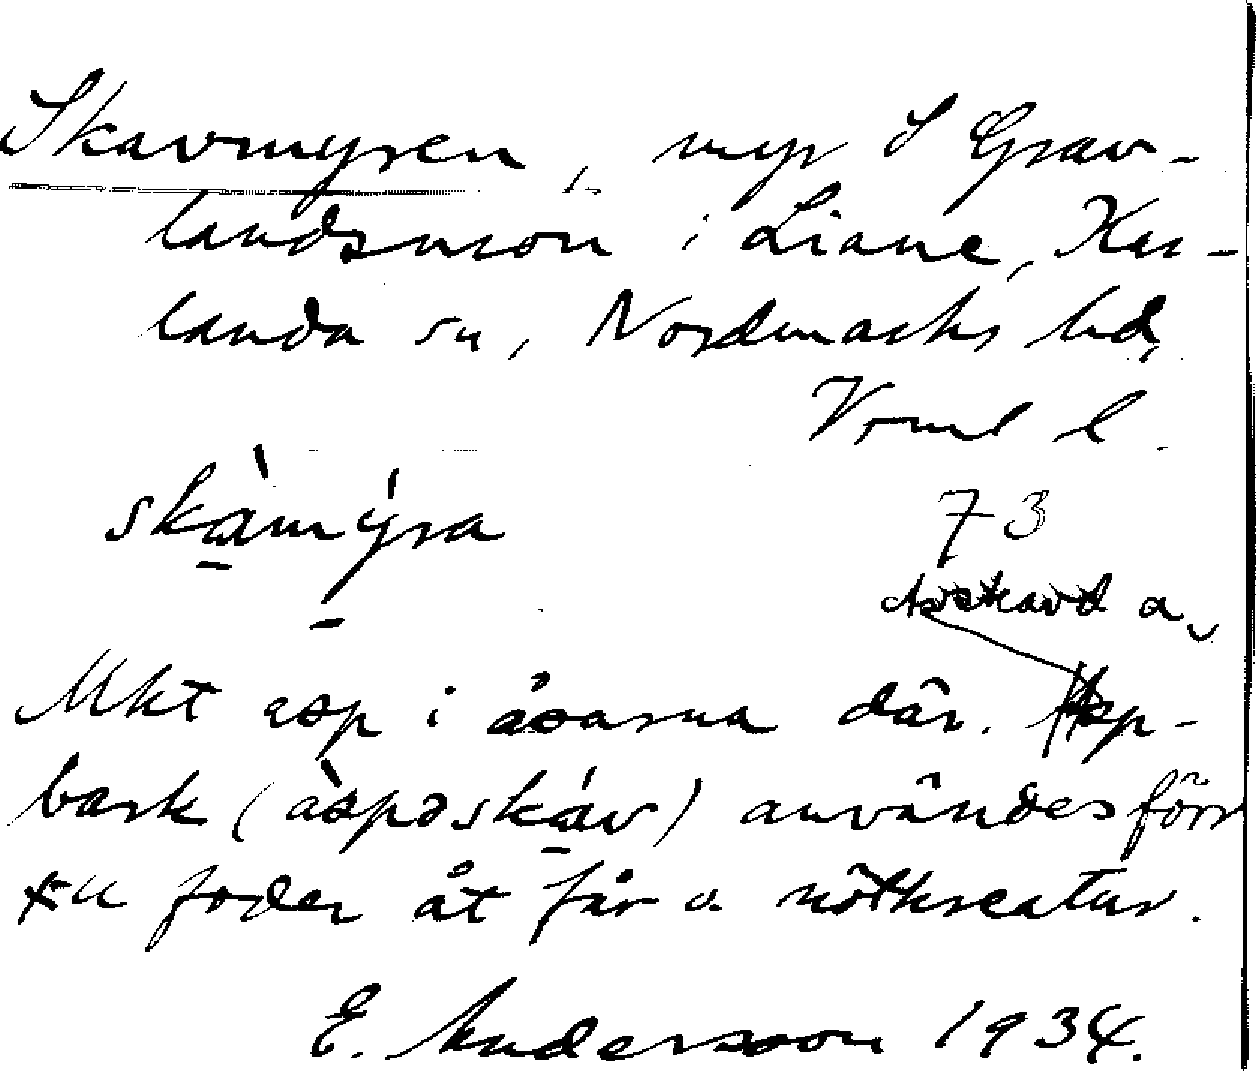 Skavmyren, myr S Grav-
landsmon i Liane, Kar-
landa sn, Nordmarks hd,
Vrml l.
skàmýra
73
Avskavd a.
Mkt asp i åsarna där. Asp-
bark (àspəskáv) användes förr
till foder åt får o. nötkreatur.
E. Andersson 1934.